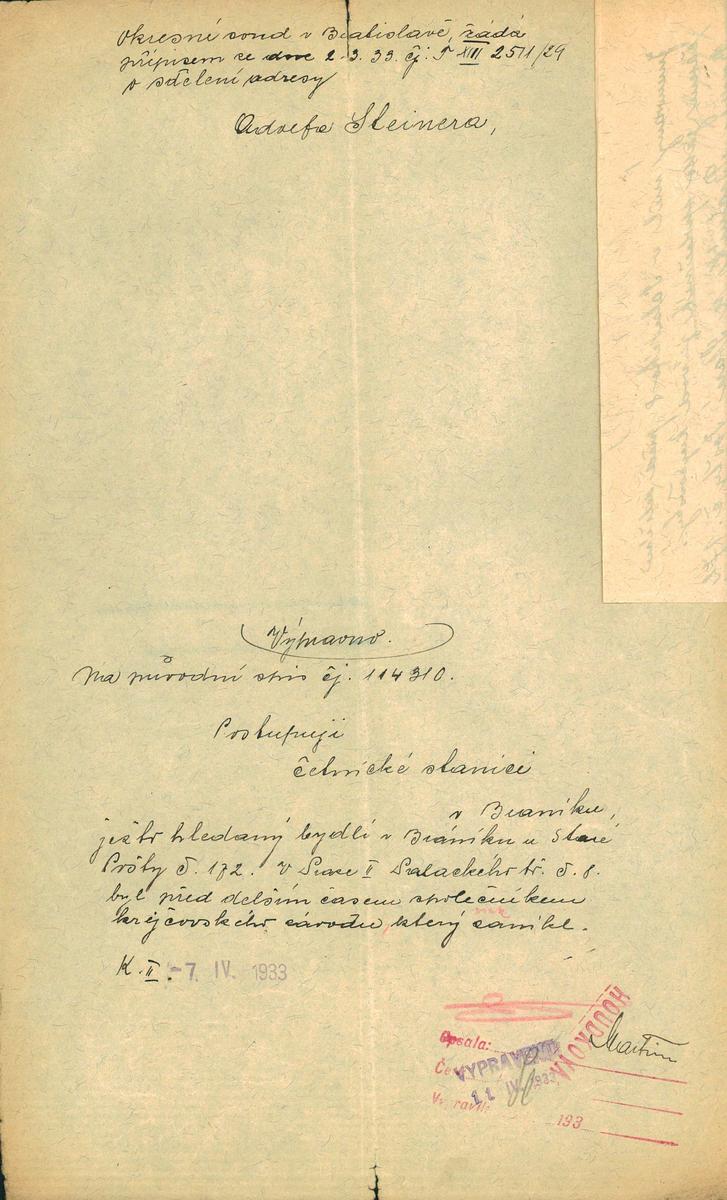 Okresní soud v Bratislavě, žádá
přípisem ze dne 2.3.33. čj. T XIII 2511/29
o sdělení adresy
Adolfa Steinera,
Výpravno.
Na původní spis čj. 114310.
Postupuji
četnické stanici
v Braníku,
ježto hledaný bydlí v Bráníku u Staré
Pošty č. 172. V Praze II Palackého tř. č. 8.
byl před delším časem společníkem
krejčovského závodu, který zanikl.
K. II. -7. IV. 1933
HOUDKOVA
Martin
Opsala:
VYPRAVENO
11 IV. 1933
193